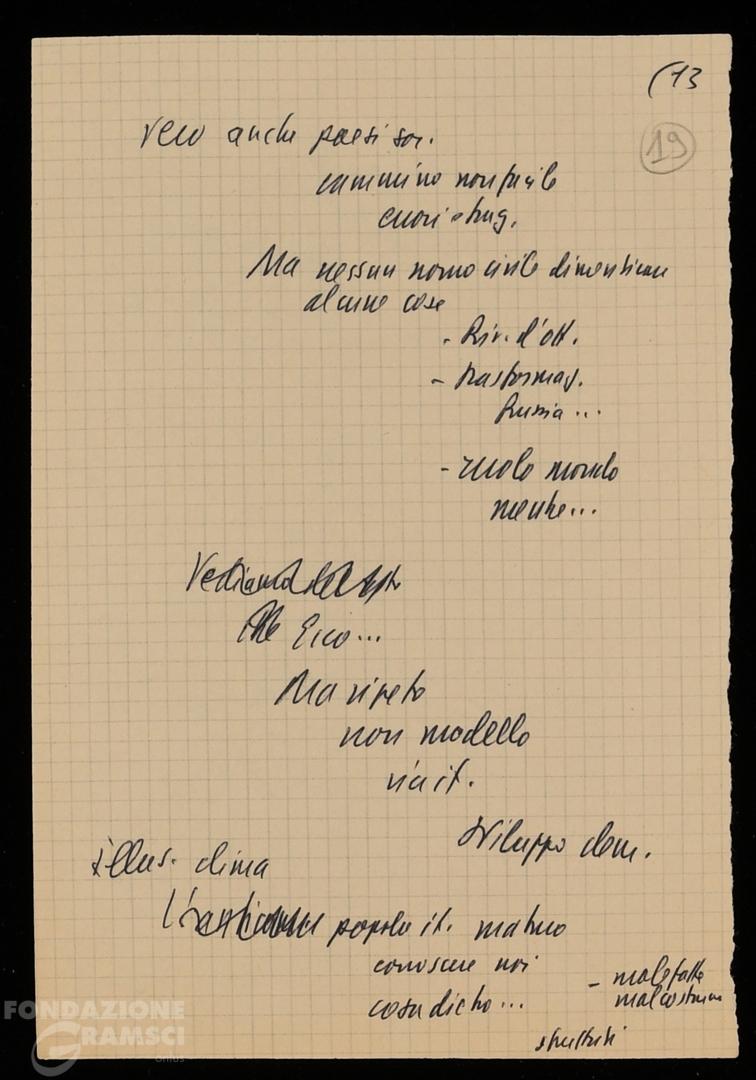 (13
19
vero anche paesi soc.
cammino non facile
errori e trag.
Ma nessun uomo civile dimenticare
alcune cose
- Riv. d'ott.
- trasformaz.
Russia...
- ruolo mondo
mentre...
Ecco...
Ma ripeto
non modello
via it.
Sviluppo dem.
clima
popolo it. maturo
conoscere noi
cosa dicho...
- malefatte
malcostume
FONDAZIONE
GRAMSCI
onlus